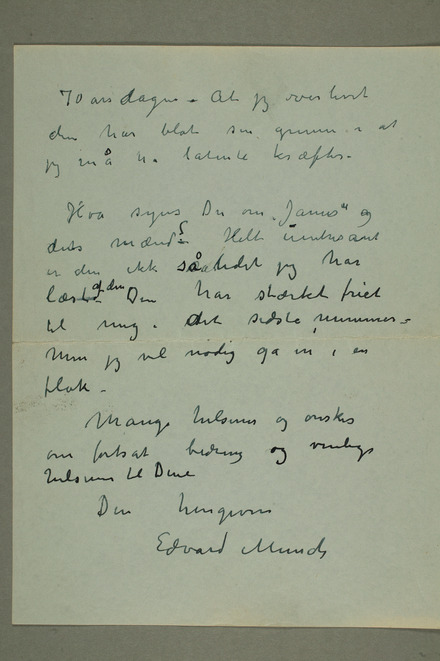 70 årsdagen – At jeg overlevet
den har blot sin grunn i at
jeg må ha latente kræfter –
Hva synes De om „Janus" og
dets mænd? Helt uinteresant
er den ikk såvidt jeg har
læst af den Den har stærkt friet
til mig i det sidste nummer –
Men jeg vil nødig gå in i en
flok –
Mange hilsener og ønsker
om fortsat bedring og venlige
hilsener til Dine
Din hengivne
Edvard Munch